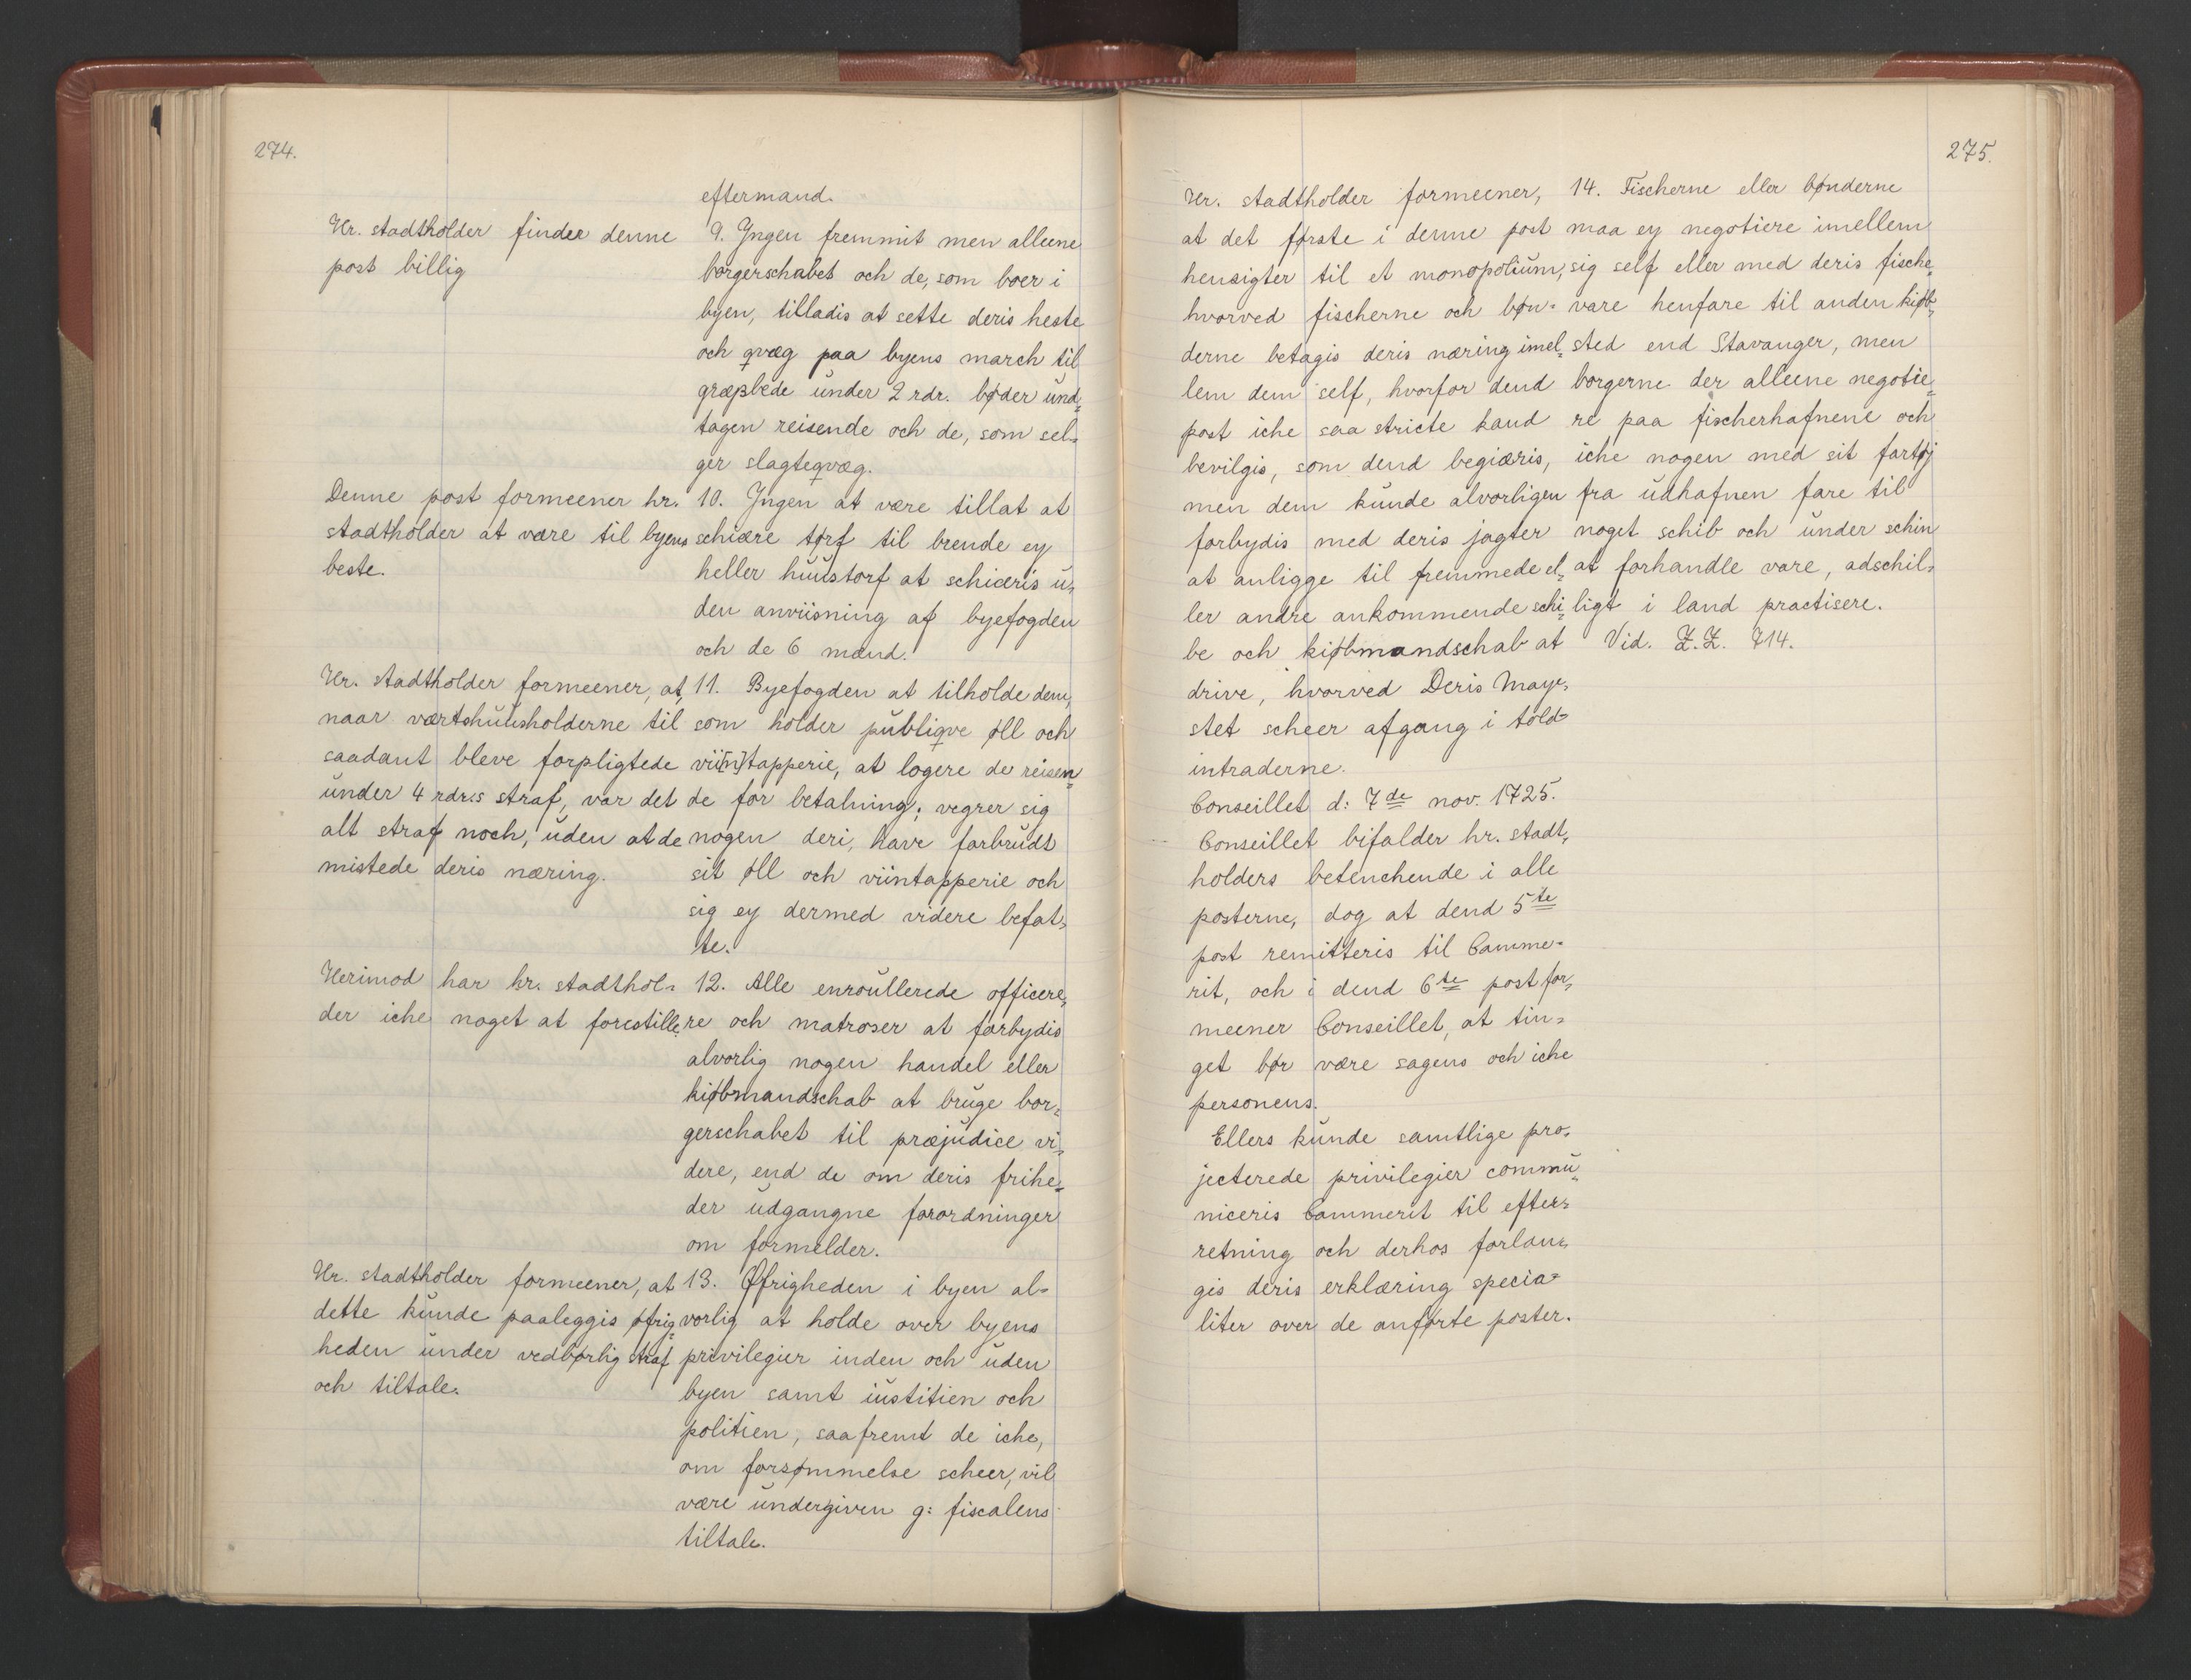 274.
eftermand.
Hr. stadtholder finder denne
post billig
9. Jngen fremmit men alleene
borgerschabet och de, som boer i
byen, tilladis at sette deris heste
och qvæg paa byens march til
græsbede under 2 rdr. bøder und-
tagen reisende och de, som sel-
ger slagteqvæg.
Denne post formeener hr.
stadtholder at være til byens
beste.
10. Jngen at være tillat at
schiære tørf til brende ey
heller huustorf at schiæris u-
den anviisning af byefogden
och de 6 mænd.
Hr. stadtholder formeener, at,
naar værtshuusholderne til
saadant bleve forpligtede
under 4 rdr.s straf, var det
alt straf noch, uden at de
mistede deris næring.
11. Byefogden at tilholde dem,
som holder publiqve øll och
vii[n]tapperie, at logere de reisen-
de for betalning; vegrer sig
nogen deri, have forbrudt
sit øll och viintapperie och
sig ey dermed videre befat-
te.
Herimod har hr. stadthol-
der iche noget at forestille.
12. Alle enroullerede officere-
re och matroser at forbydis
alvorlig nogen handel eller
kiøbmandschab at bruge bor-
gerschabet til præjudice vi-
dere, end de om deris frihe-
der udgangne forordninger
om formelder.
Hr. stadtholder formeener, at
dette kunde paaleggis øfrig-
heden under vedbørlig straf
och tiltale.
13. Øfrigheden i byen al-
vorlig at holde over byens
privilegier inden och uden
byen samt iustitien och
politien, saafremt de iche,
om forsømmelse scheer, vil
være undergiven g: fiscalens
tiltale.
275.
Hr. stadtholder formeener,
at det første i denne post
hensigter til et monopolium,
hvorved fischerne och bøn-
derne betagis deris næring imel-
lem dem self, hvorfor dend
post iche saa stricte kand
bevilgis, som dend begiæris,
men dem kunde alvorligen
forbydis med deris jagter
at anligge til fremmede el-
ler andre ankommende schi-
be och kiøbmandschab at
drive, hvorved Deris Maye-
stet scheer afgang i told-
intraderne.
14. Fischerne eller bønderne
maa ey negotiere imellem
sig self eller med deris fische-
vare henfare til anden kiøb-
sted end Stavanger, men
borgerne der alleene negotie-
re paa fischerhafnene och
iche nogen med sit fartøj
fra udhafnen fare til
noget schib och under schin
at forhandle vare, adschil-
ligt i land practisere.
Vid. Z.Z. 714.
Conseillet d: 7de nov. 1725.
Conseillet bifalder hr. stadt-
holders betenchende i alle
posterne, dog at dend 5te
post remitteris til Camme-
rit, och i dend 6te post for-
meener Conseillet, at tin-
get bør være sagens och iche
personens.
Ellers kunde samtlige pro-
jecterede privilegier commu-
niceris Cammerit til efter-
retning och derhos forlan-
gis deris erklæring specia-
liter over de anførte poster.